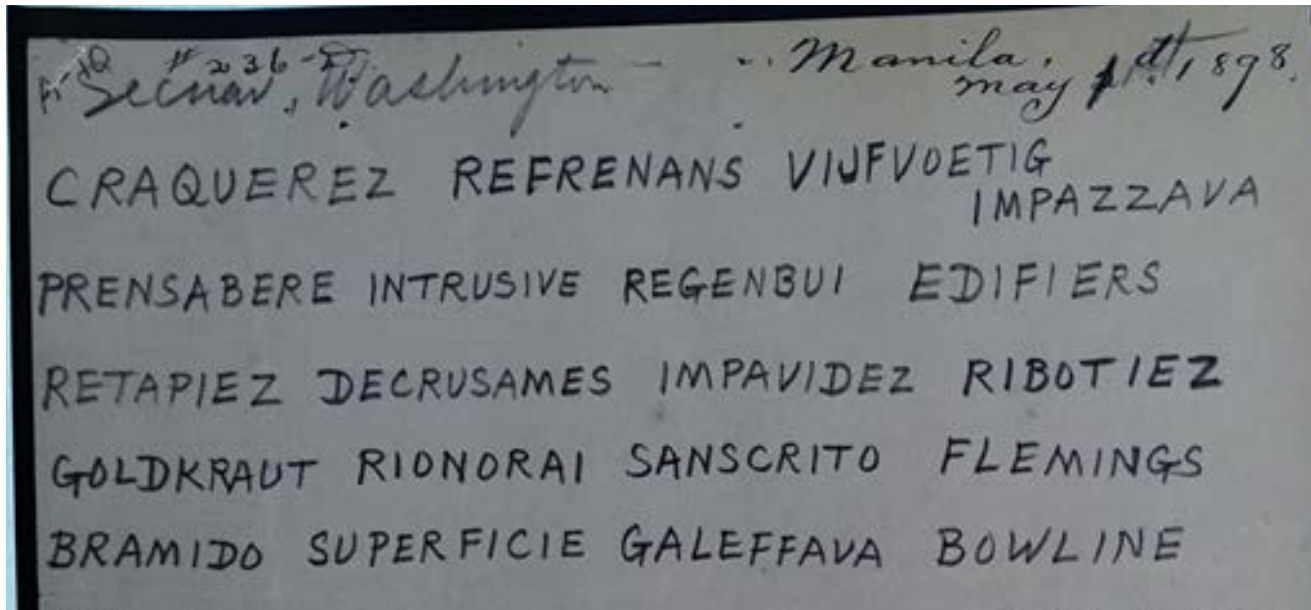 # 236-D
Secnav, Washington — Manila,
May 1898.
CRAQUEREZ REFRENANS VIJFVOETIG
IMPAZZAVA
PRENSABERE INTRUSIVE REGENBUI EDIFIERS
RETAPIEZ DECRUSAMES IMPAVIDEZ RIBOTIEZ
GOLDKRAUT RIONORAI SANSCRITO FLEMINGS
BRAMIDO SUPERFICIE GALEFFAVA BOWLINE